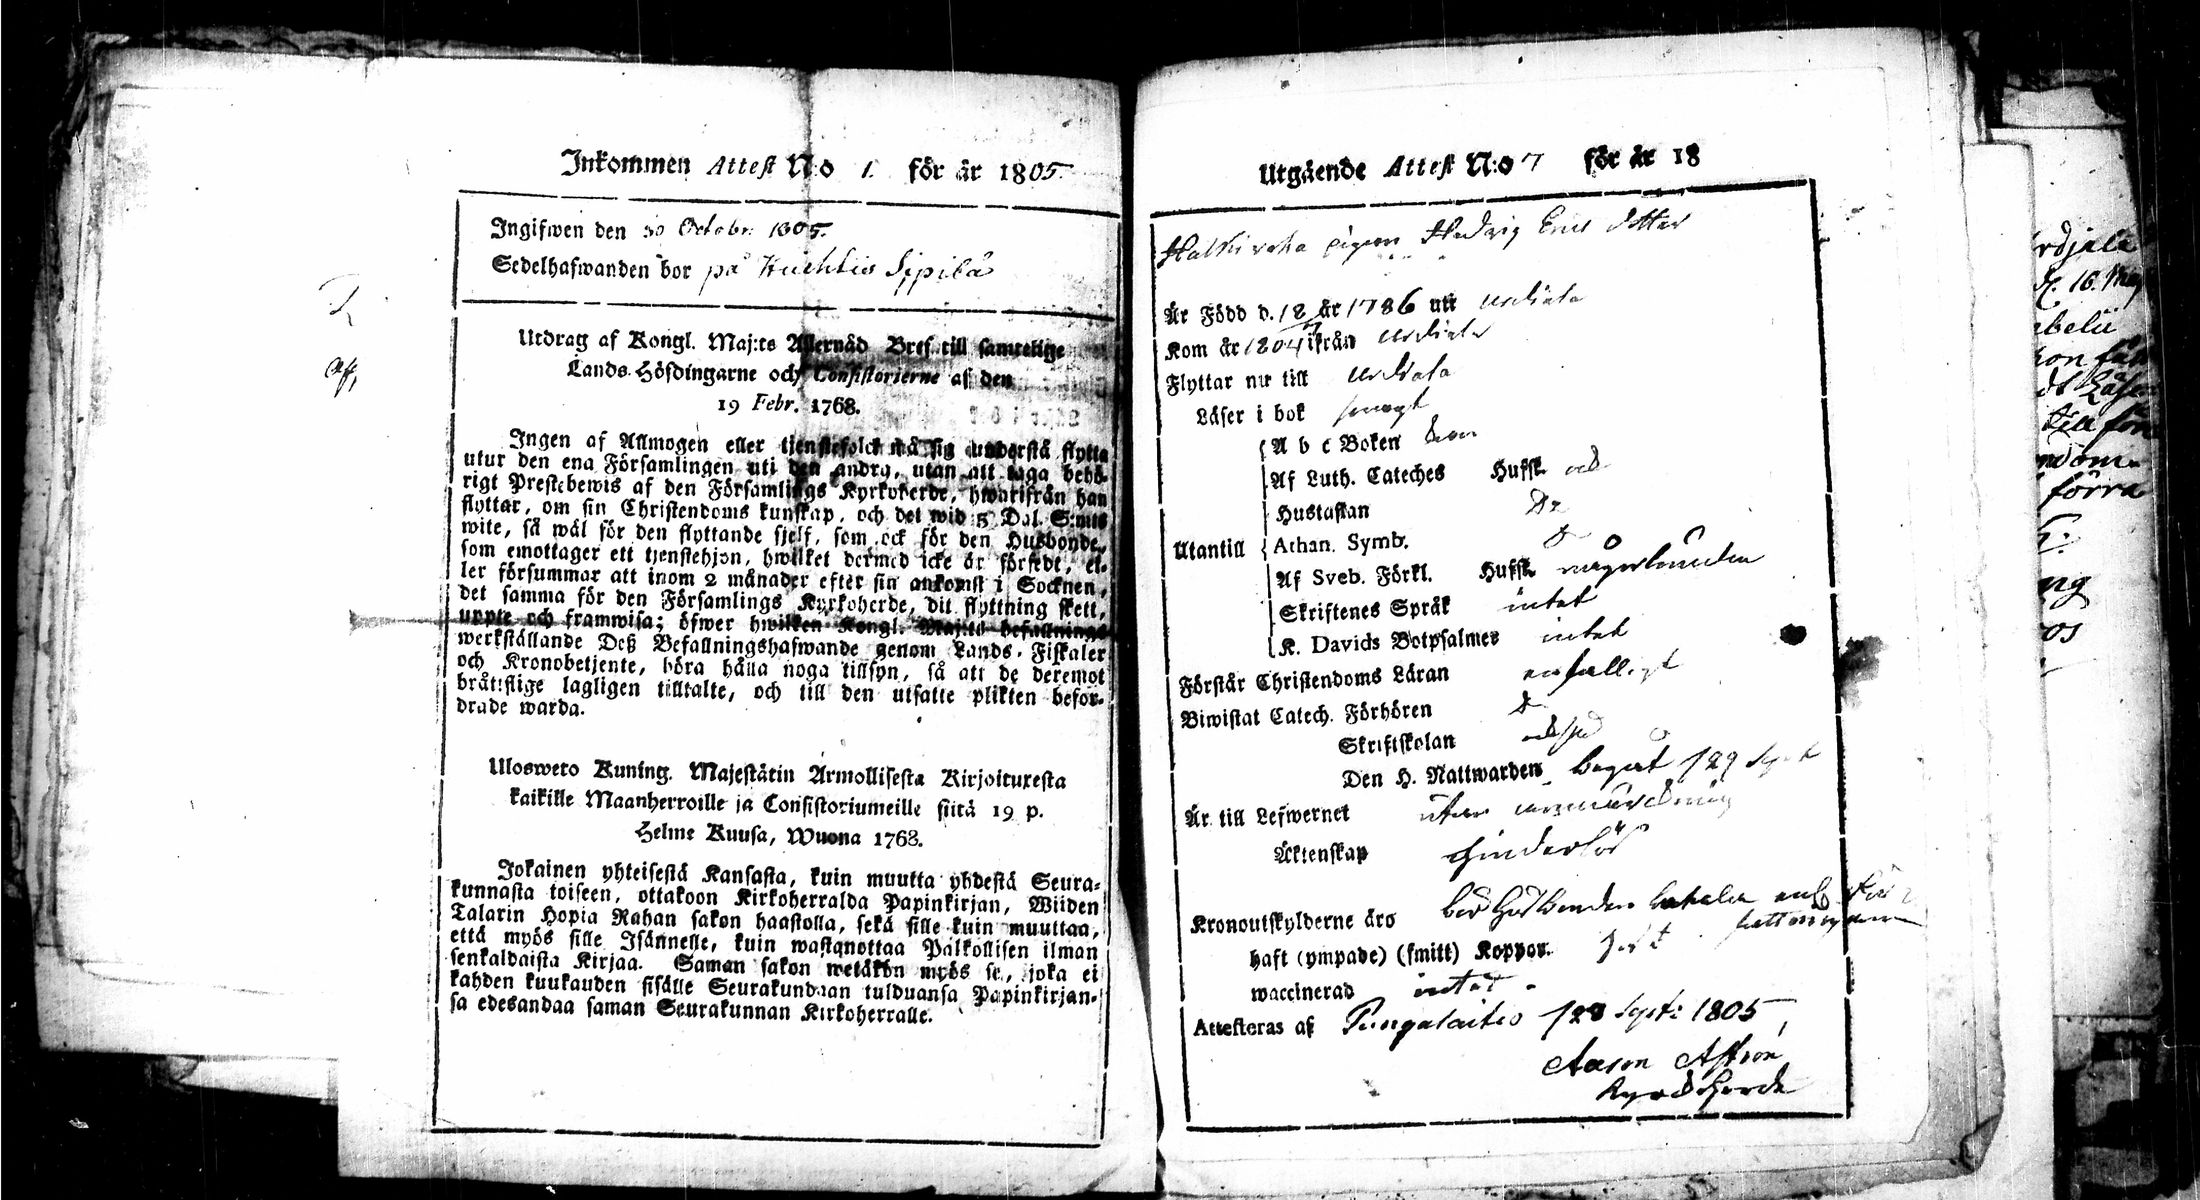 Inkommen Attest N:o 1. för år 1805
Ingifwen den 30 Octobr: 1805.
Sedelhafwanden bor på Sipilä
Utdrag af Kongl. Maj:ts Allernåd Bref till samtelige
Lands-Höfdingarne och Consistorierne af den
19 Febr. 1768.
Ingen af Allmogen eller tjenstefolck må sig understå flytta
utur den ena Församlingen uti den andra, utan att taga behö-
rigt Prestebewis af den Församlings Kyrkoherde, hwarifrån han
flyttar, om sin Christendoms kunskap, och det wid 5 Dal. S:mts
wite, så wäl för den flyttande sjelf, som ock för den Husbonde,
som emottager ett tjenstehjon, hwilket dermed icke är försedt, el-
ler försummar att inom 2 månader efter sin ankomst i Socknen,
det samma för den Församlings Kyrkoherde, dit flyttning skett,
uppte och framwisa; öfwer hwilken Kongl. Maj:ts befallnings
werkställande Deß Befallningshafwande genom Lands-Fiskaler
och Kronobetjente, böra hålla noga tillsyn, så att de deremot
bråttslige lagligen tilltalte, och till den utsatte plikten befor-
drade warda.
Ulosweto Kuning. Majestätin Armollisesta Kirjoituxesta
kaikille Maanherroille ja Consistoriumeille siitä 19 p.
Helme Kuusa, Wuona 1768.
Jokainen yhteisestä Kansasta, kuin muutta yhdestä Seura-
kunnasta toiseen, ottakoon Kirkoherralda Papinkirjan, Wiiden
Talarin Hopia Rahan sakon haastolla, sekä sille kuin muuttaa,
että myös sille Isännelle, kuin wastanottaa Palkollisen ilman
senkaldaista Kirjaa. Saman sakon wetäkön myös se, joka ei
kahden kuukauden sisälle Seurakundaan tulduansa Papinkirjan-
sa edesandaa saman Seurakunnan Kirkoherralle.
Utgående Attest N:o 7 för år 18
pigan Hedvig Erics dotter
Är Född d. 18 år 1786 uti Urdiala
Kom år 1804 ifrån Urdiala
Flyttar nu till Urdiala
Läser i bok swagt
A b c Boken
Af Luth. Cateches Hufst. och
Hustaflan Do
Utantill Athan. Symb. Do
Af Sveb. Förkl. Hufst. någorlunda
Skriftenes Språk intet
K. Davids Botpsalmer intet
Förstår Christendoms Läran enfalligt
Biwistat Catech. Förhören
Skriftskolan
Den H. Nattwarden begått 29 Sept
Är till Lefwernet utan anmärckning
Äktenskap hinderlös
Kronoutskylderne äro
haft (ympade) (smitt) Koppor. haft
waccinerad intet
Attesteras af Pungalaitio 28 Sept: 1805
Aaron Aström
Kyrckoherde